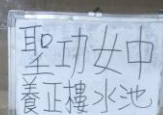 聖功女中
養正樓水池